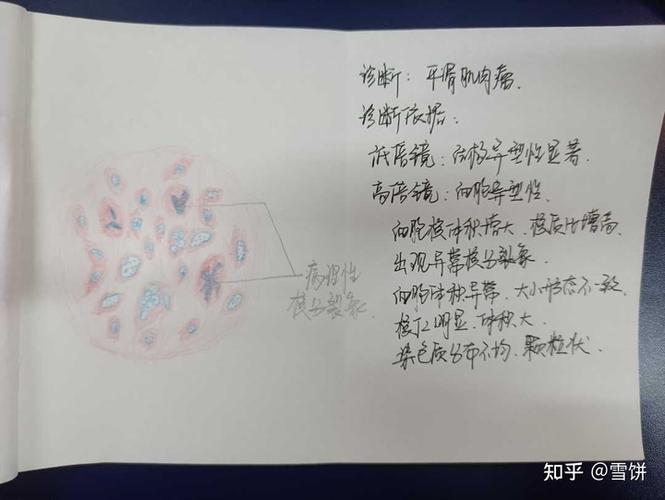 诊断：平滑肌肉瘤.
诊断依据：
低倍镜：结构异型性显著.
高倍镜：细胞异型性.
细胞核体积增大、核质比增高.
出现异常核分裂象.
细胞体积异常、大小形态不一致.
核仁明显、体积大.
染色质分布不均、颗粒状.
病理性
核分裂象.
知乎 @雪饼